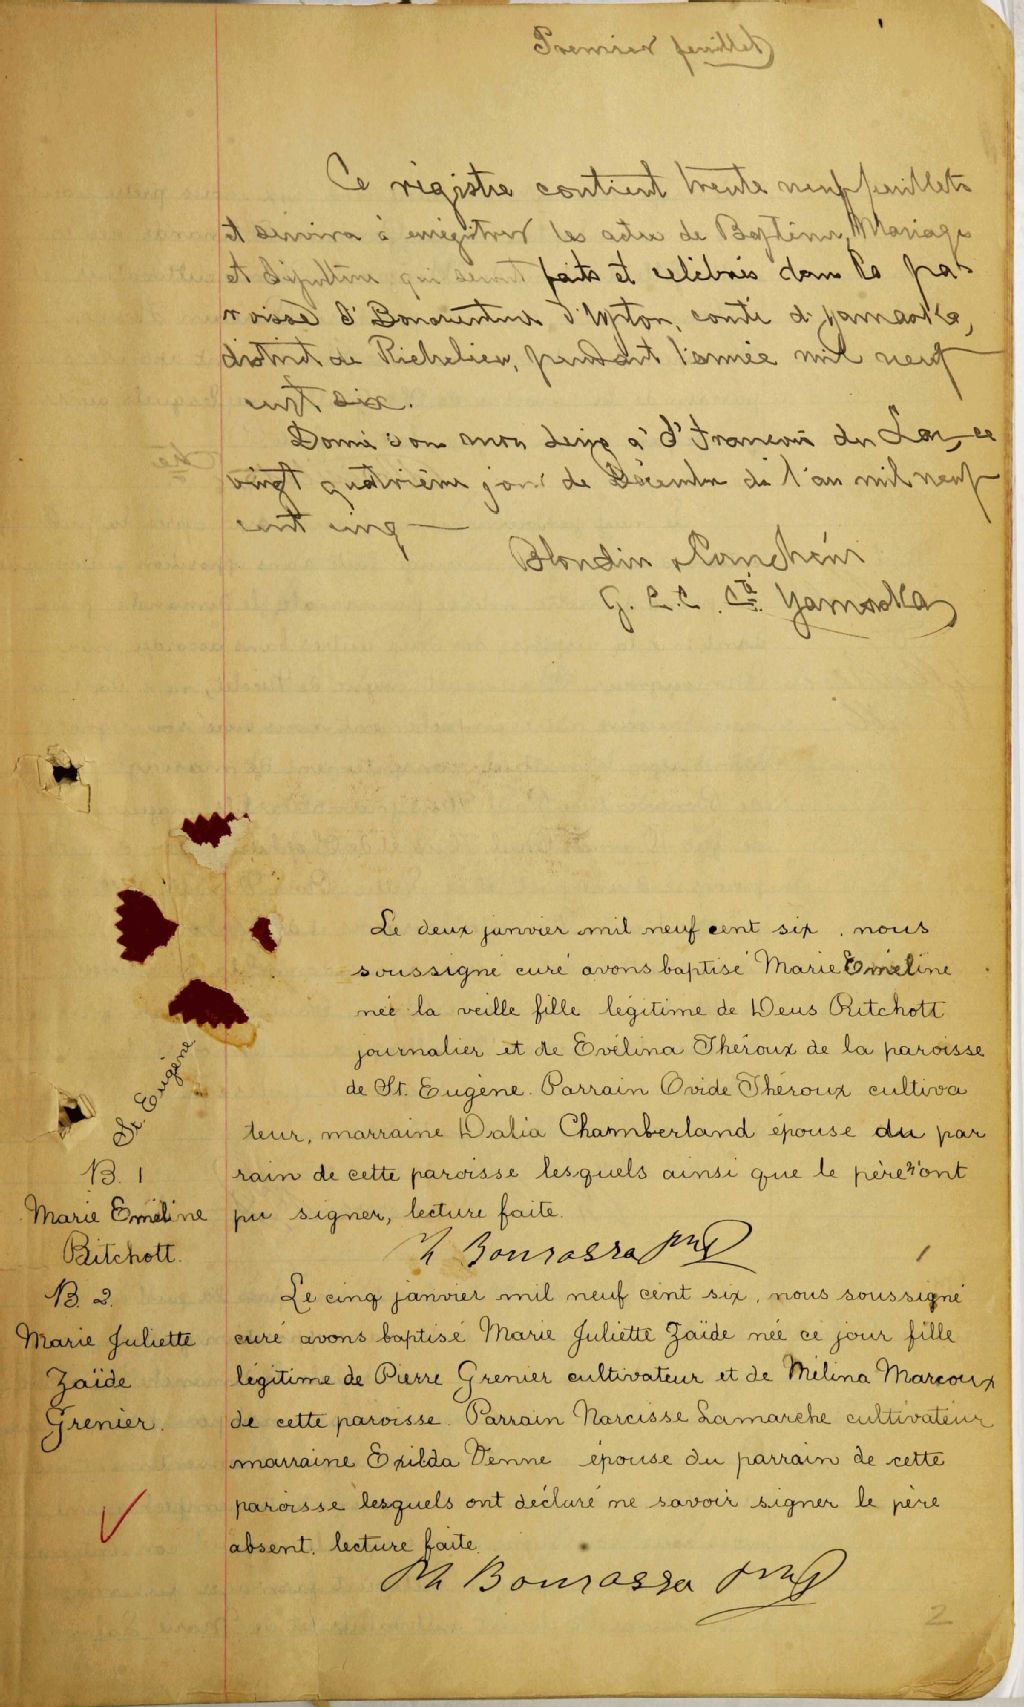 Premier feuillet
Ce régistre contient trente neuf feuillets
et servira à enrégistrer les actes de Baptême, Mariage
et Sépulture qui seront faits et célébrés dans la pa-
roisse St Bonaventure d'Upton, comté d'Yamaska,
district de Richelieu, pendant l'année mil neuf
cent six.
Donné sous mon seing à St François du Lac, ce
vingt quatrième jour de Décembre de l'an mil neuf
cent cinq
Blondin &
G. C. C. Cté Yamaska
Le deux janvier mil neuf cent six, nous
soussigné curé avons baptisé Marie Eméline
née la veille fille légitime de Deus Ritchott
journalier et de Evélina Théroux de la paroisse
de St. Eugène. Parrain Ovide Théroux cultiva
teur, marraine Dalia Chamberland épouse du par
rain de cette paroisse lesquels ainsi que le père n'ont
pu signer, lecture faite.
Bourassa ptre
St. Eugène
B. 1
Marie Eméline
Ritchott.
B. 2.
Marie Juliette
Zaïde
Grenier.
Le cinq janvier mil neuf cent six, nous soussigné
curé avons baptisé Marie Juliette Zaïde née ce jour fille
légitime de Pierre Grenier cultivateur et de Mélina Marcoux
de cette paroisse. Parrain Narcisse Lamarche cultivateur
marraine Exilda Venne épouse du parrain de cette
paroisse lesquels ont déclaré ne savoir signer le père
absent. lecture faite.
Bourassa ptre
2